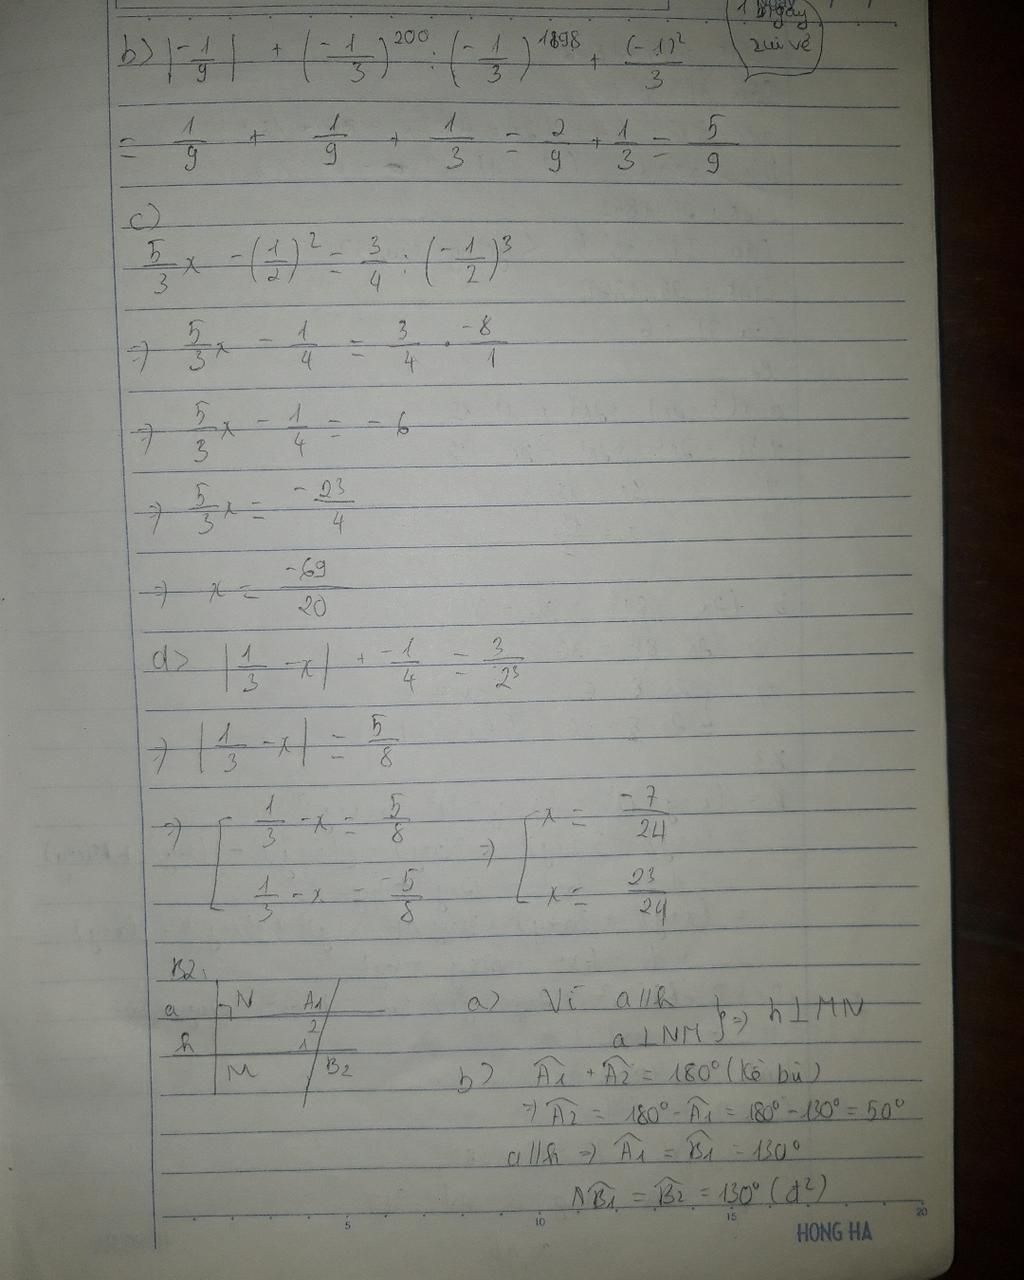 1 ngày
zui vẻ
b) |-1/9| + (-1/3)^200 : (-1/3)^1898 + (-1)^2/3
= 1/9 + 1/9 + 1/3 = 2/9 + 1/3 = 5/9
c)
5/3 x - (1/2)^2 = 3/4 : (-1/2)^3
=> 5/3 x - 1/4 = 3/4 . -8/1
=> 5/3 x - 1/4 = -6
=> 5/3 x = -23/4
=> x = -69/20
d> |1/3 - x| + -1/4 = 3/2^3
=> |1/3 - x| = 5/8
=> [ 1/3 - x = 5/8 => [ x = -7/24
1/3 - x = -5/8 x = 23/24
B2.
a N A1
2
h 1
M B2
a) Vì a//h
a ⊥ NM } => h ⊥ MN
b> Â1 + Â2 = 180° (kề bù)
=> Â2 = 180° - Â1 = 180° - 130° = 50°
a//h => Â1 = B̂1 = 130°
∧ B̂1 = B̂2 = 130° (đ²)
5 10 15 20
HONG HA